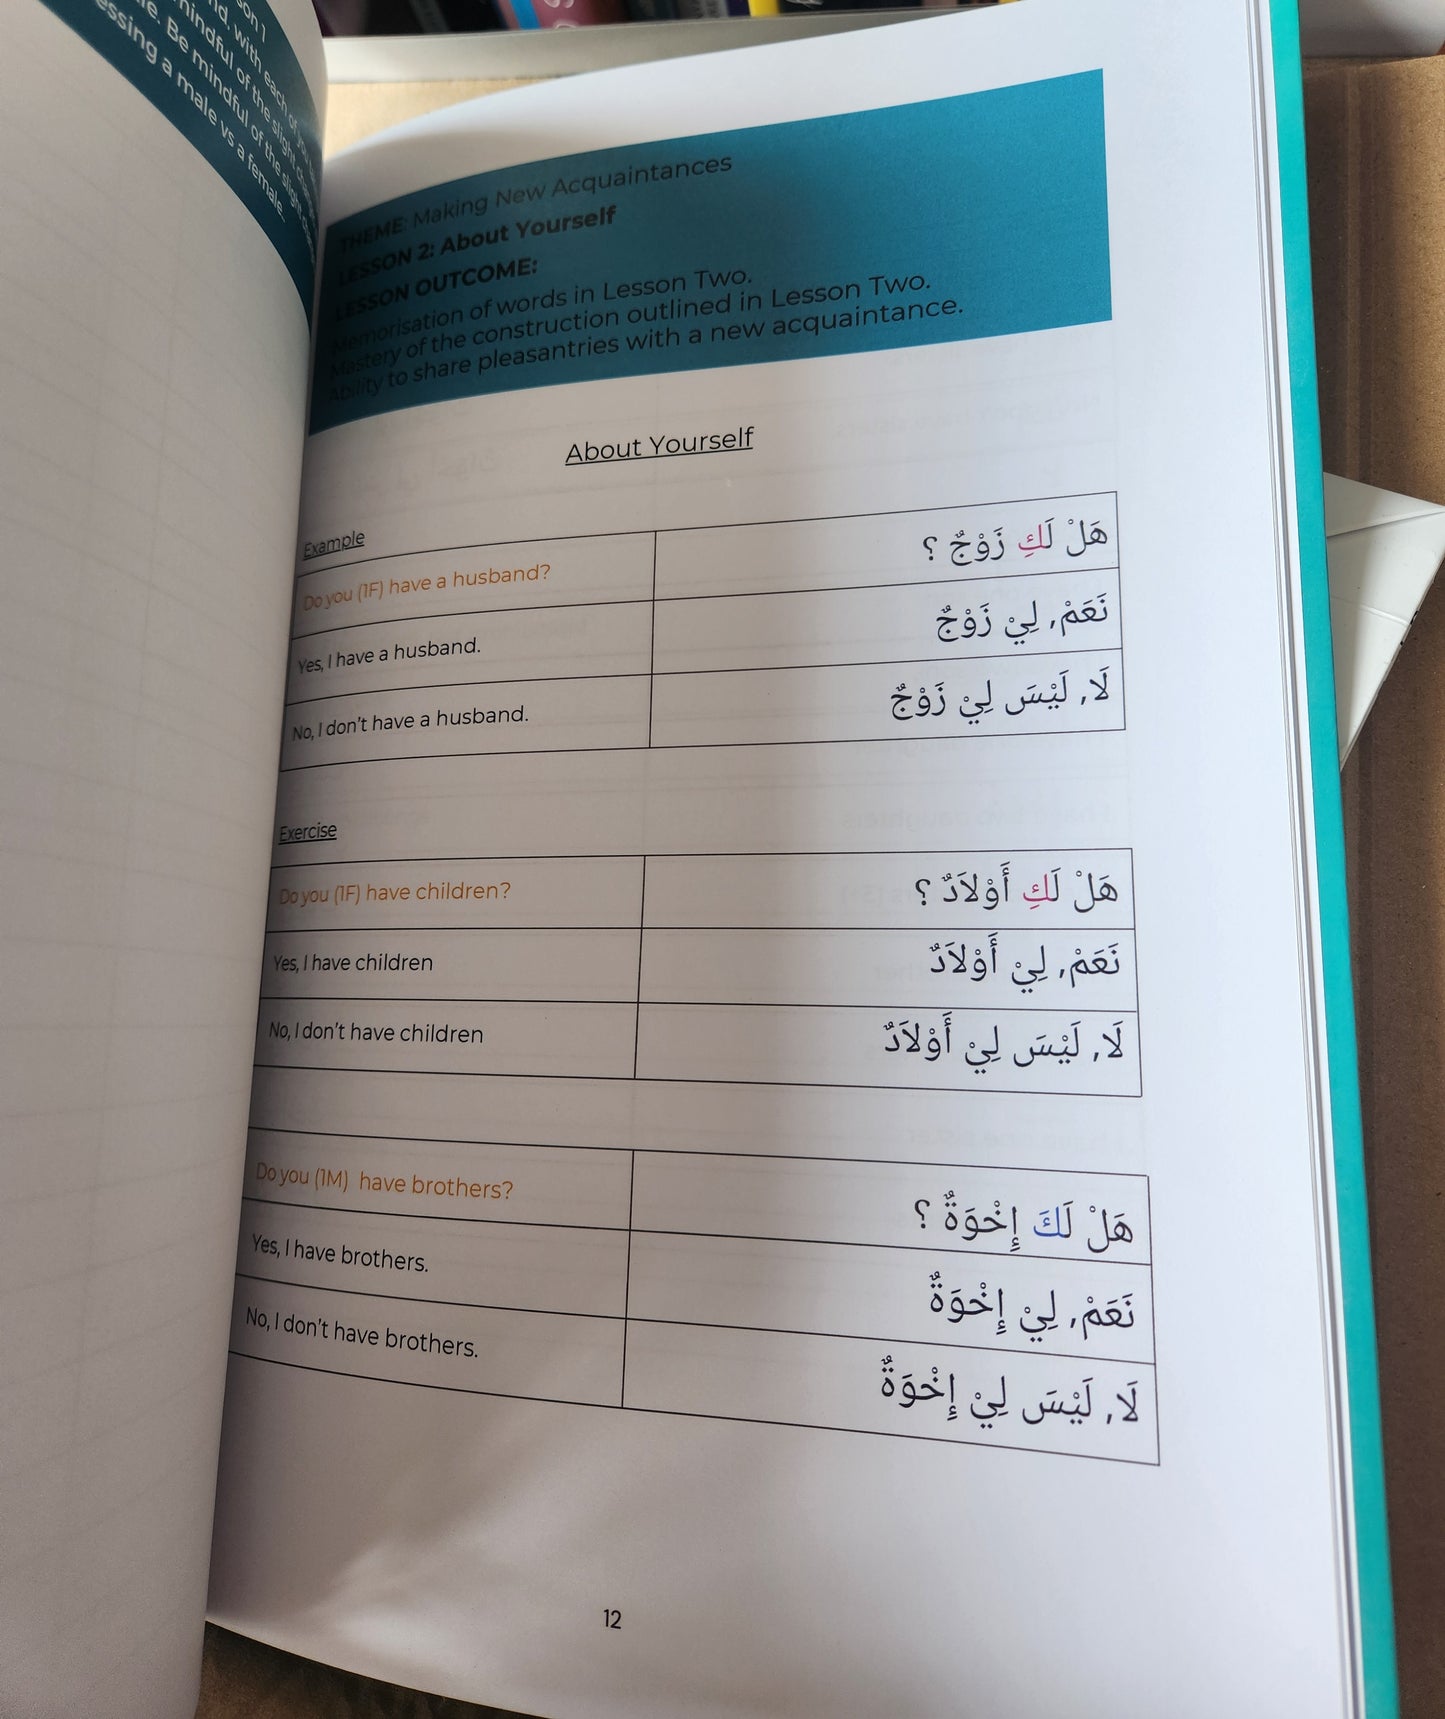 son 1
nd, with each of your
mindful of the slight change
le. Be mindful of the slight change
essing a male vs a female.
THEME: Making New Acquaintances
LESSON 2: About Yourself
LESSON OUTCOME:
Memorisation of words in Lesson Two.
Mastery of the construction outlined in Lesson Two.
Ability to share pleasantries with a new acquaintance.
About Yourself
Example
Do you (1F) have a husband?
هَلْ لَكِ زَوْجٌ ؟
Yes, I have a husband.
نَعَمْ, لِيْ زَوْجٌ
No, I don't have a husband.
لَا, لَيْسَ لِيْ زَوْجٌ
Exercise
Do you (1F) have children?
هَلْ لَكِ أَوْلاَدٌ ؟
Yes, I have children
نَعَمْ, لِيْ أَوْلاَدٌ
No, I don't have children
لَا, لَيْسَ لِيْ أَوْلاَدٌ
Do you (1M) have brothers?
هَلْ لَكَ إِخْوَةٌ ؟
Yes, I have brothers.
نَعَمْ, لِيْ إِخْوَةٌ
No, I don't have brothers.
لَا, لَيْسَ لِيْ إِخْوَةٌ
12